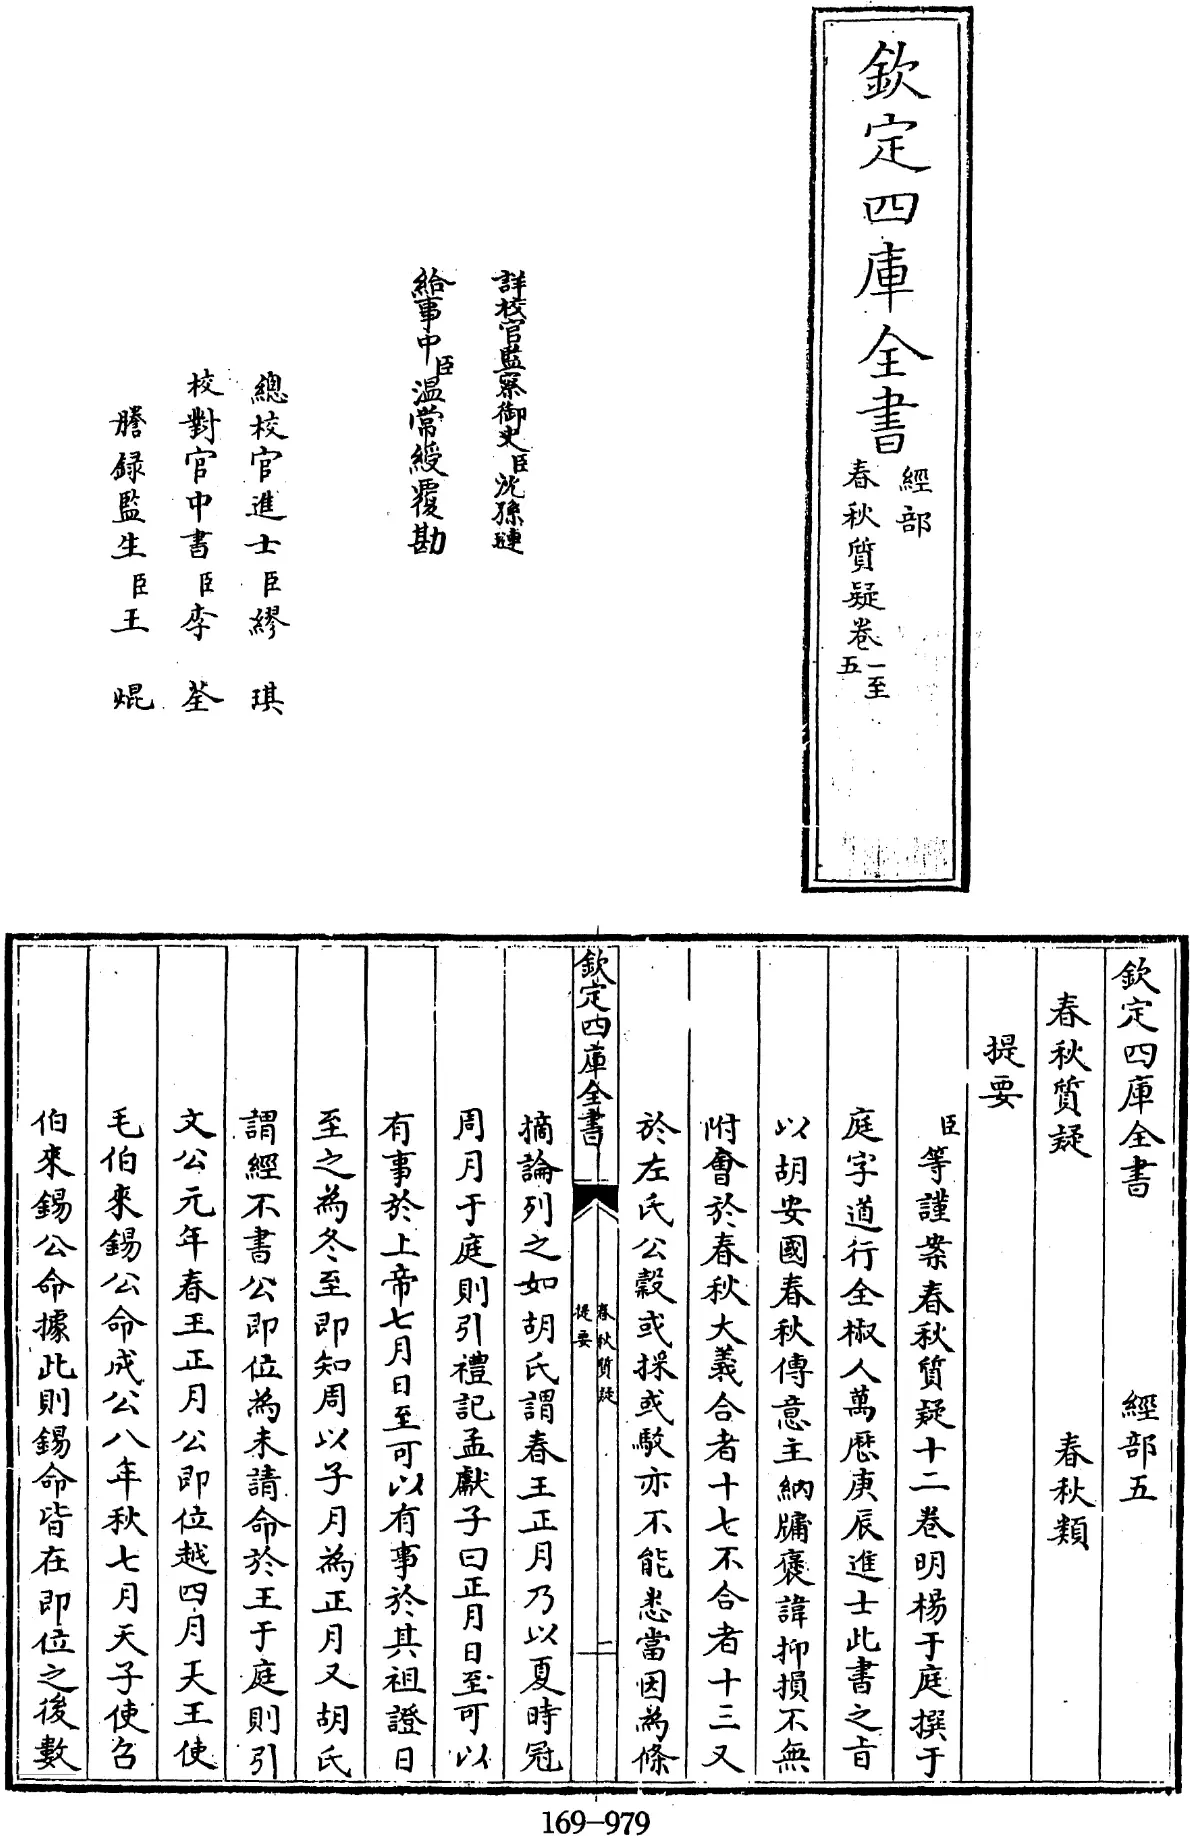 欽定四庫全書
經部
春秋質疑卷一至五
詳校官監察御史臣沈孫璉
給事中臣溫常綬覆勘
總校官進士臣繆琪
校對官中書臣李荃
謄録監生臣王焜
欽定四庫全書 經部五
春秋質疑 春秋類
提要
臣等謹案春秋質疑十二卷明楊于庭撰于
庭字道行全椒人萬歷庚辰進士此書之旨
以胡安國春秋傳意主納牖褒諱抑損不無
附會於春秋大義合者十七不合者十三又
於左氏公穀或採或駁亦不能悉當因為條
欽定四庫全書
春秋質疑
提要
二
摘論列之如胡氏謂春王正月乃以夏時冠
周月于庭則引禮記孟獻子曰正月日至可以
有事於上帝七月日至可以有事於其祖證日
至之為冬至即知周以子月為正月又胡氏
謂經不書公即位為未請命於王于庭則引
文公元年春王正月公即位越四月天王使
毛伯來錫公命成公八年秋七月天子使召
伯來錫公命據此則錫命皆在即位之後數
169-979